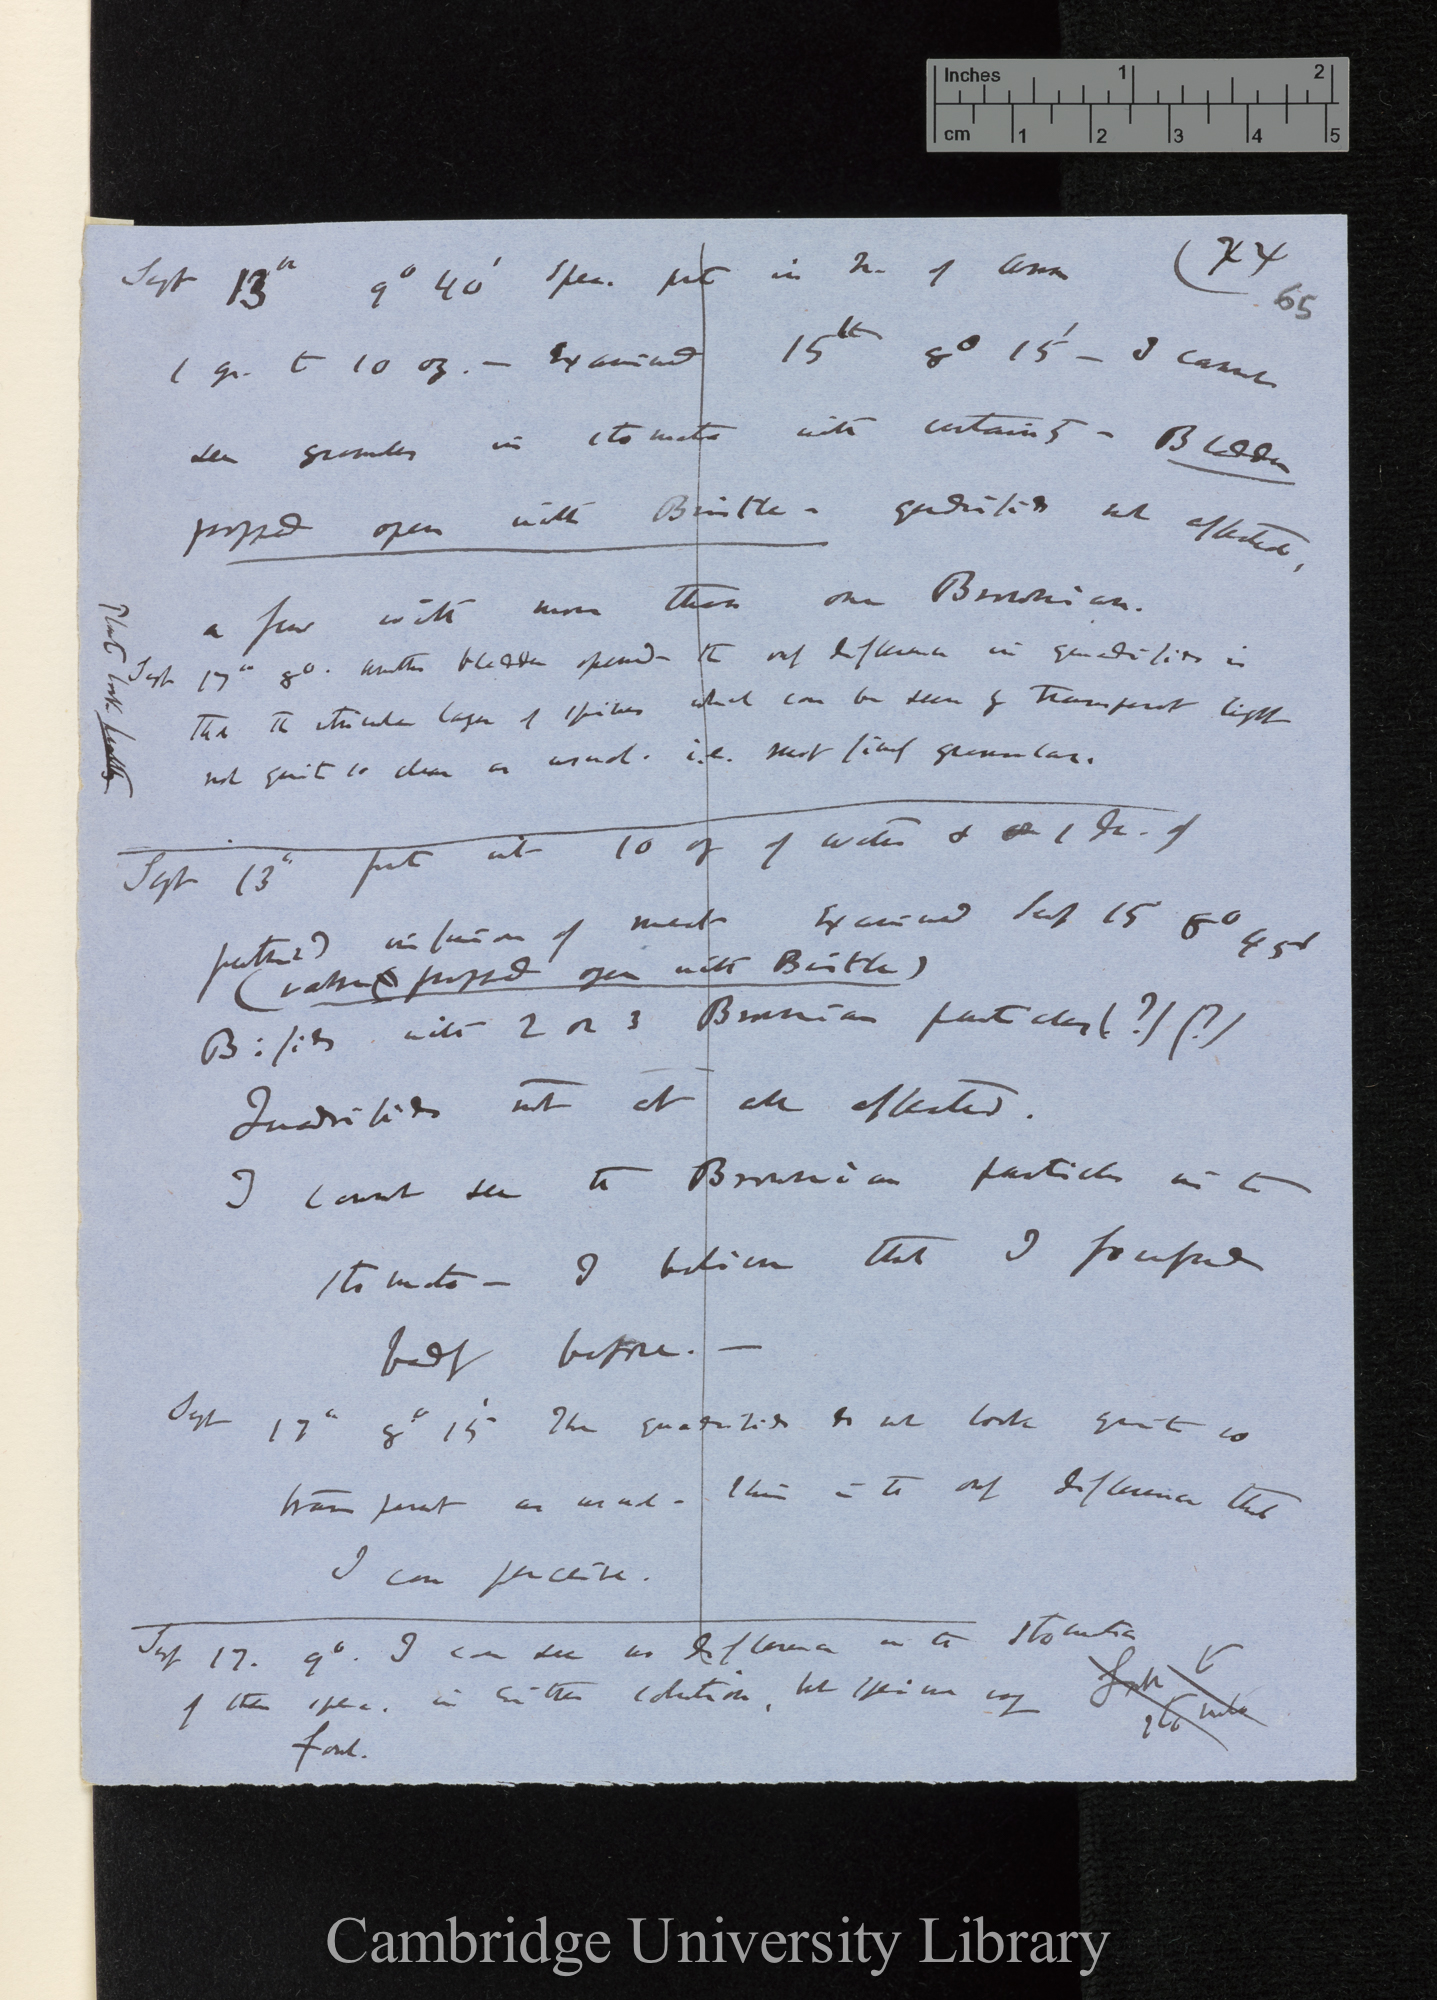 Inches 1 2
cm 1 2 3 4 5
(74
65
Sept 13th 9° 40' Spec. put in N. of Amm
1 gr. to 10 oz. — Examined 15th 8° 15' — I cannot
see granules in stomata with certainty — Bladder
propped open with Bristle — quadrifids not affected,
a few with more than one Brownian.
Sept 17th 8°. another bladder opened — the only difference in quadrifids is
that the utricular layer of spines which can be seen by transparent light
not quite so clear as usual. i.e. most finely granular.
Plant look healthy
Sept 13th put into 10 oz of water & 1 dr. of
putrid infusion of meat Examined Sept 15 8° 45'
(valve propped open with Bristle)
Bifids with 2 or 3 Brownian particles (?) (?)
Quadrifids not at all affected.
I cannot see the Brownian particles in the
stomata — I believe that I focussed
badly before. —
Sept 17th 8° 15' The quadrifids do not look quite so
transparent as usual — this is the only difference that
I can perceive.
Sept 17. 9°. I can see no difference in the stomata
of the spec. in either solution, but specimen very
foul.